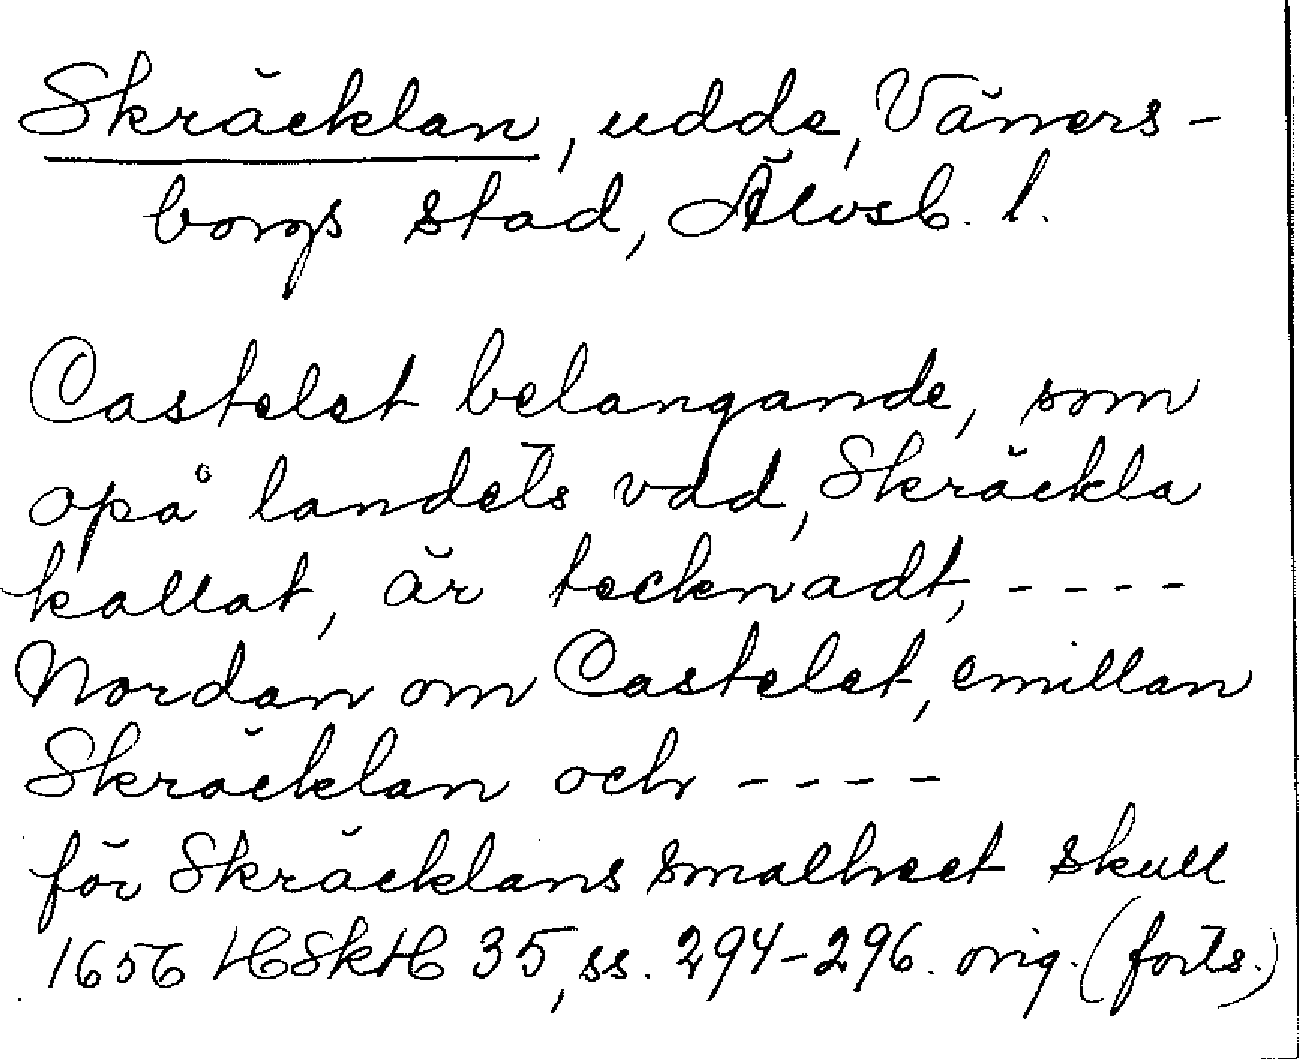 Skräcklan, udde, Väners-
borgs stad, Älvsb. l.
Castelet belangande, som
opå landets vdd, Skräckla
kallat, är tecknadt, ----
Nordan om Castelet, emillan
Skräcklan och ----
för Skräcklans smalheet skull
1656 HSkH 35, ss. 294-296. orig. (forts.)